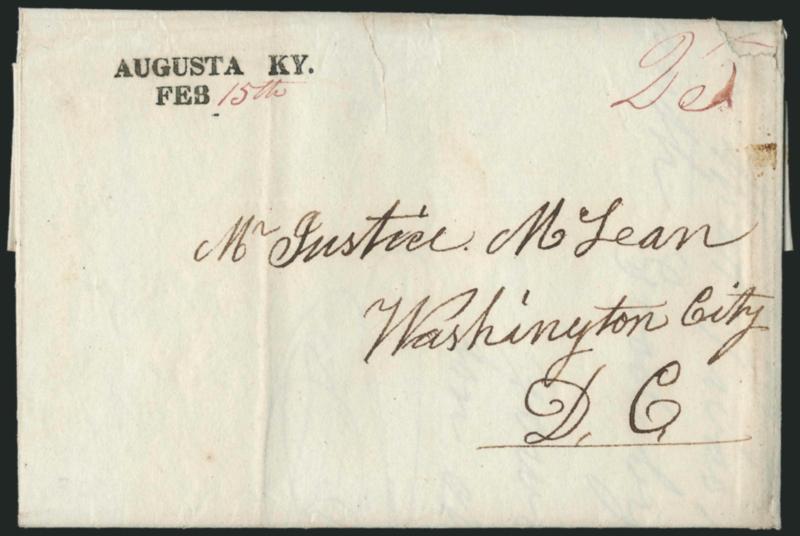 AUGUSTA KY.
FEB 15th
Mr Justice McLean
Washington City
D. C.